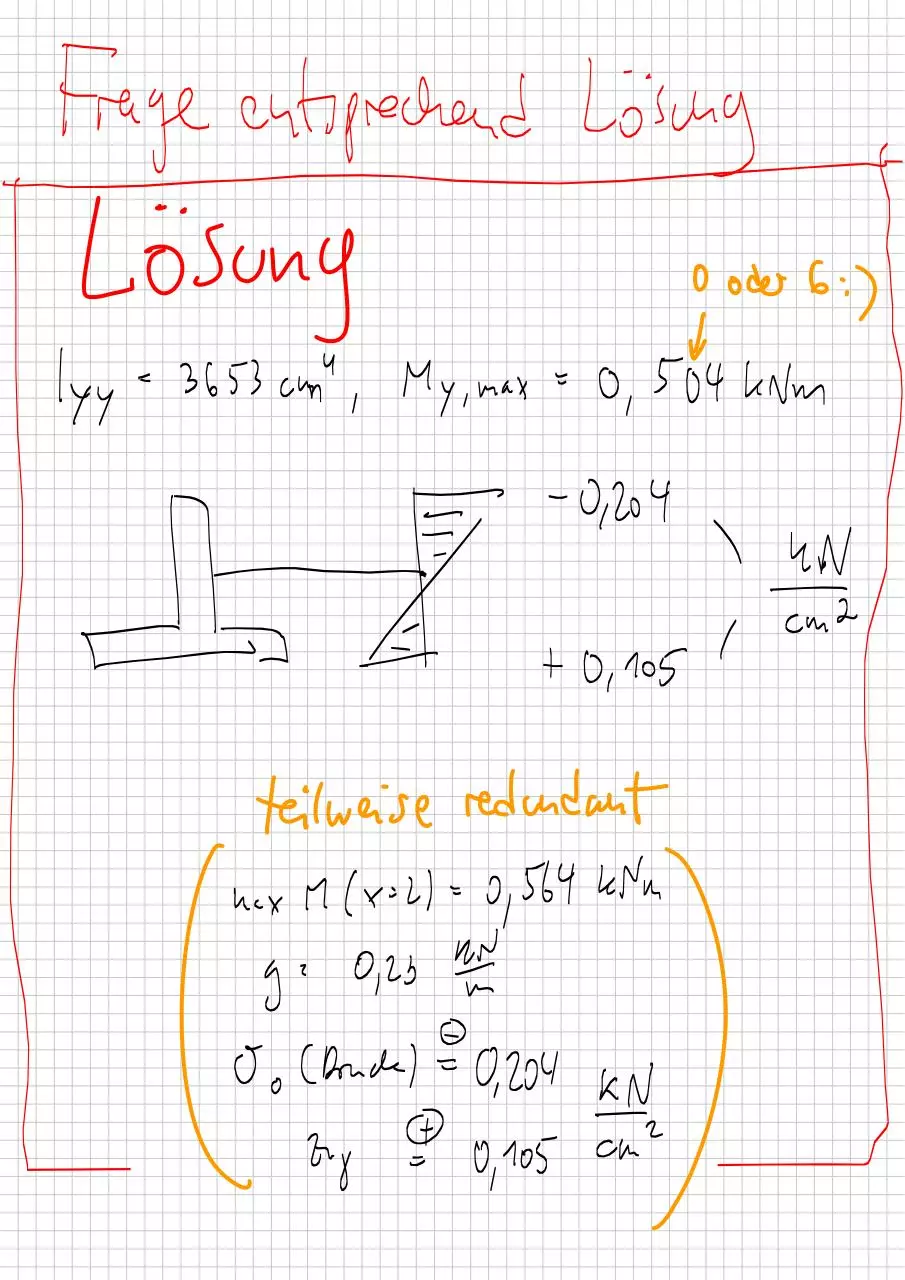 Frage entsprechend Lösung
Lösung
0 oder 6 :)
Iyy = 3653 cm⁴, My,max = 0,504 kNm
-0,204
kN/cm²
+0,105
teilweise redundant
max M (x=2) = 0,564 kNm
g = 0,23 kN/m
σ₀ (Druck) ⊖= 0,204 kN/cm²
Zug ⊕= 0,105